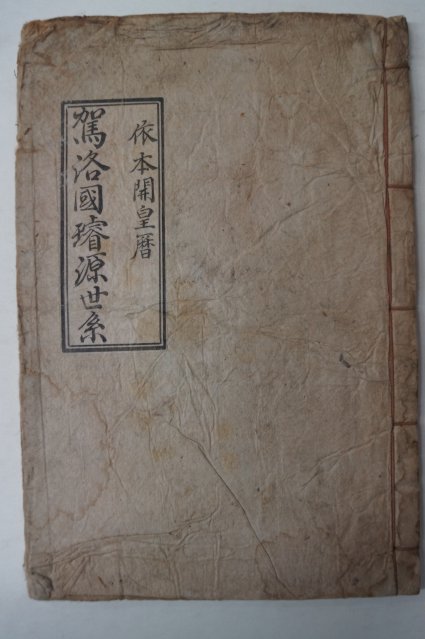 依本開皇曆
駕洛國璿源世系